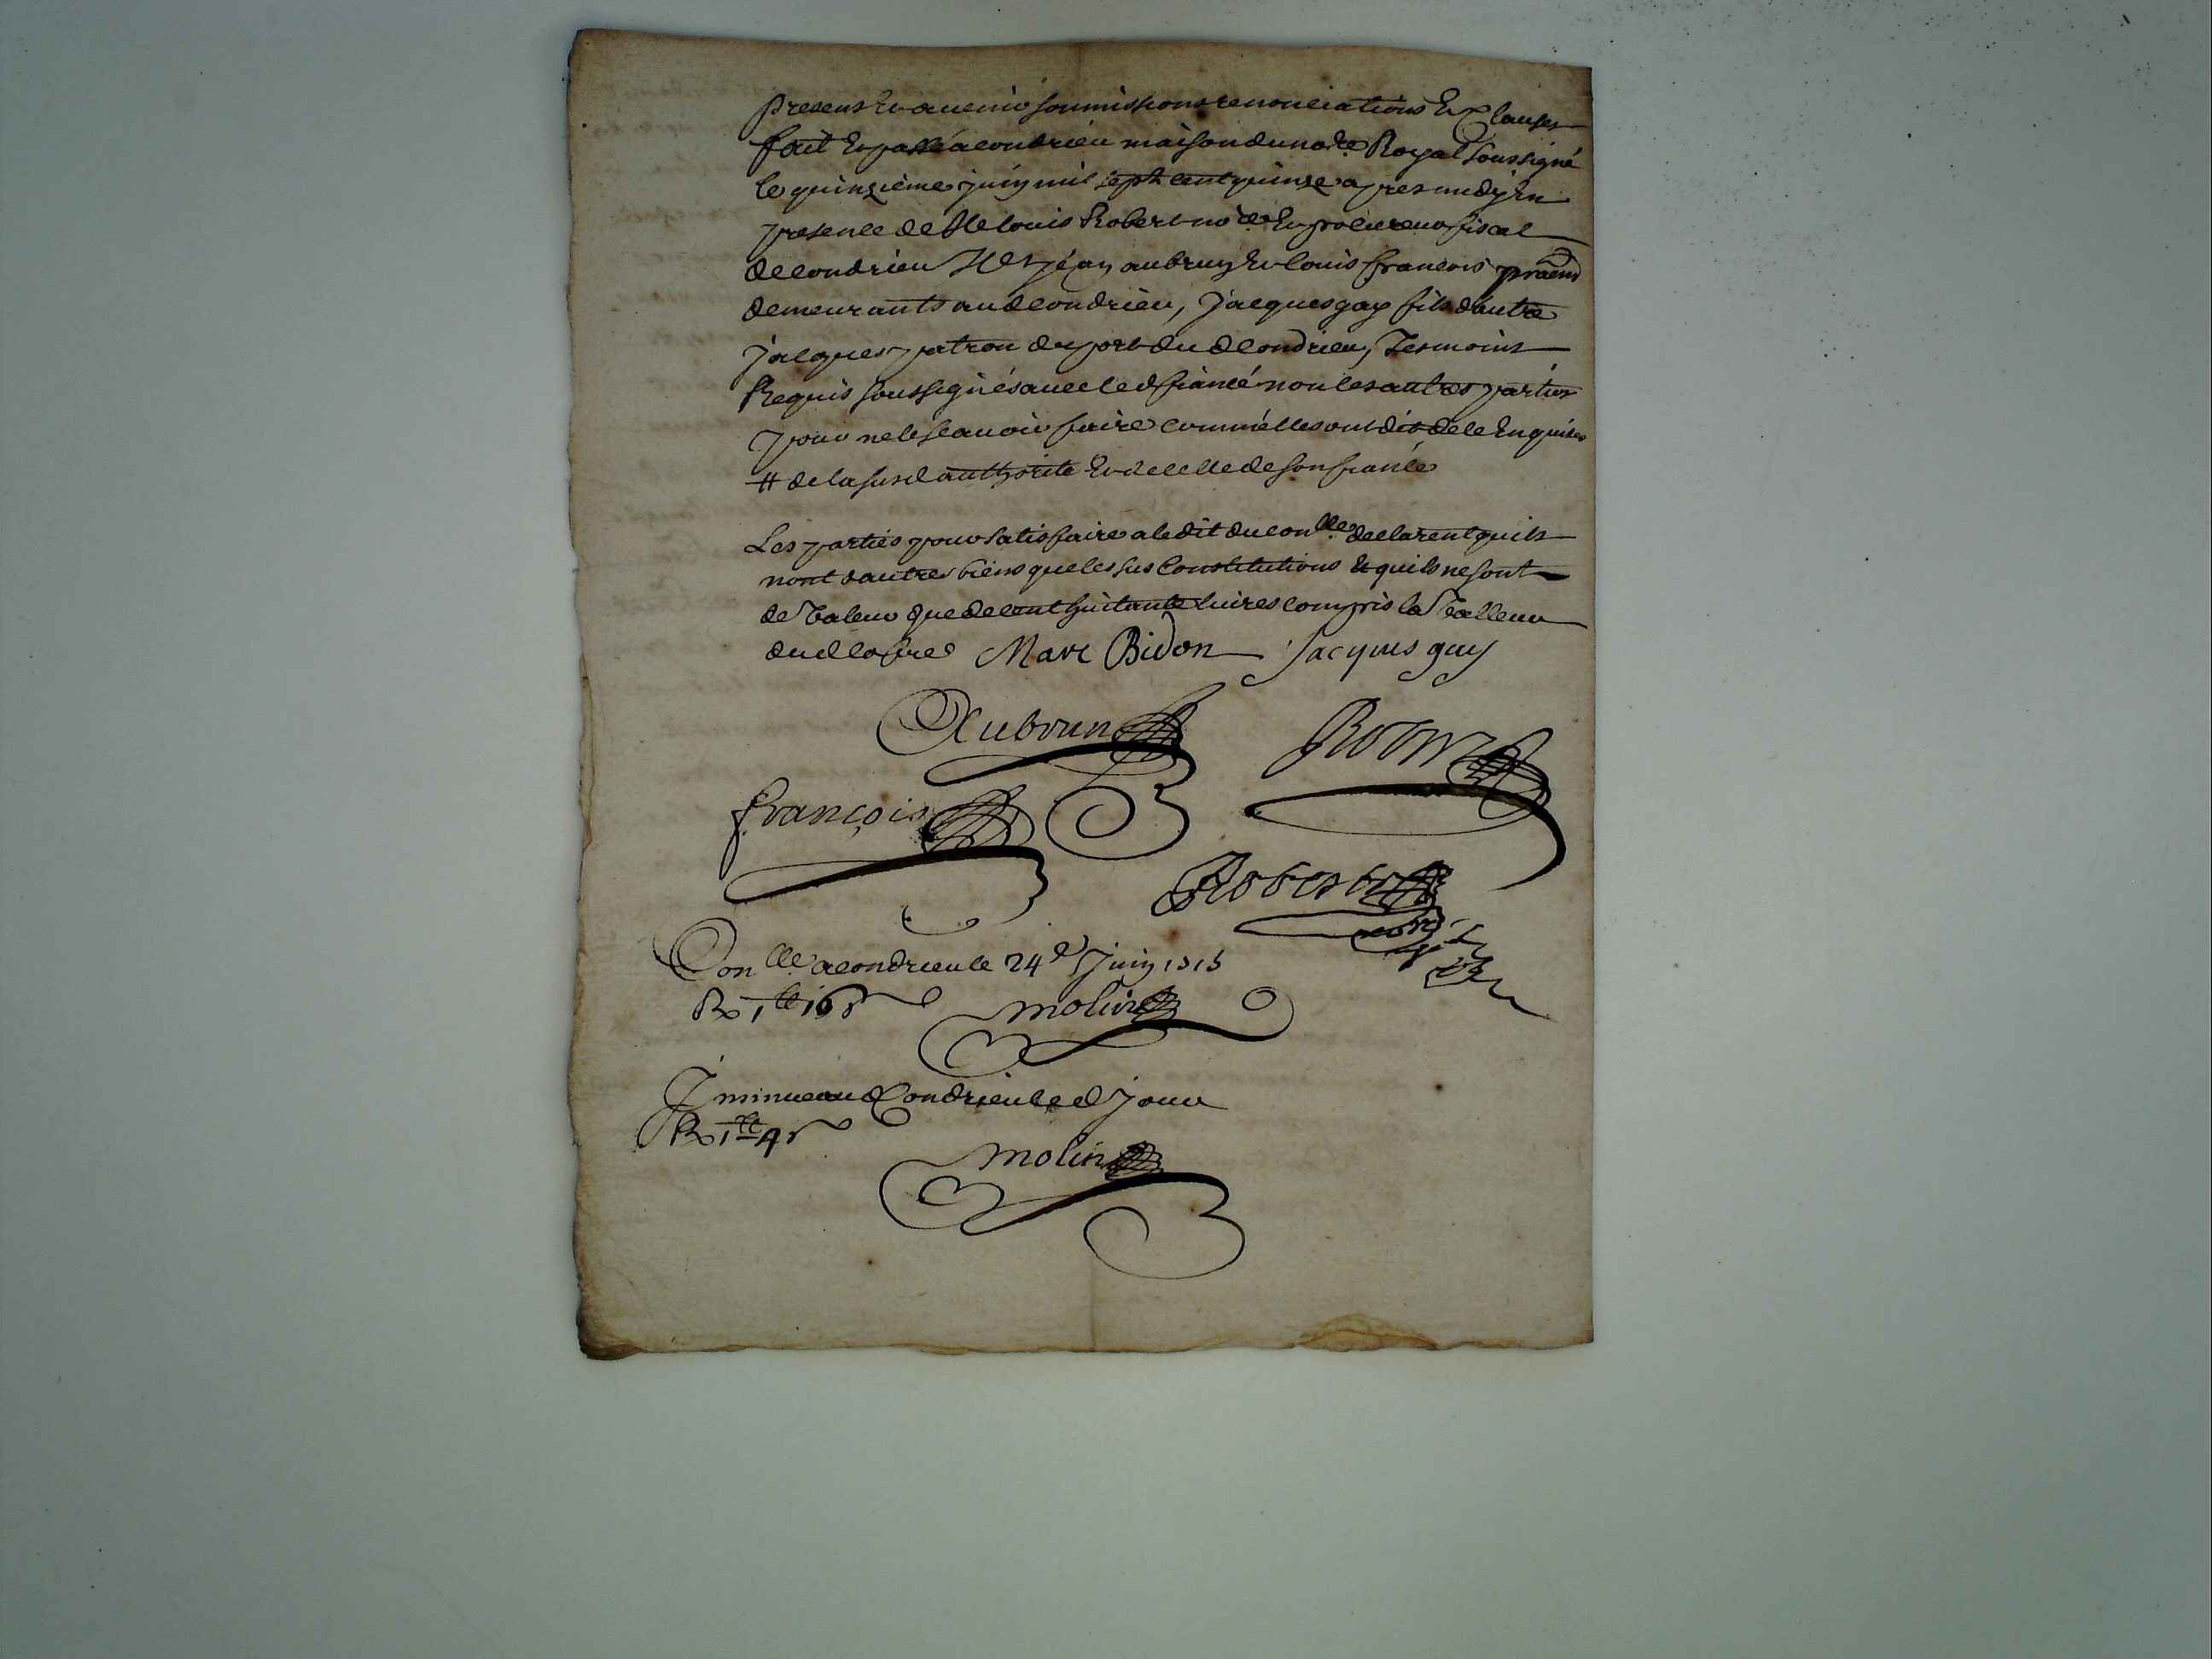 present et avenir soumissions renonciations et Clauses
fait et passé a condrieu maison du no.re Royal soussigné
le quinzieme juin mil sept cent quinze apres midy En
presence de Me louis Robert no.re et procureur fiscal
de condrieu Mes jean aubrun et louis francois pratiens
demeurants aud condrieu, jacques gay fils d'autre
jacques patron du port dud condrieu, tesmoins
Requis soussignés avec led fiancé non les autres parties
pour ne le scavoir faire comm'elles ont dit de ce Enquises
# de la susd authorité et de celle de son fiancé
Les parties pour satisfaire a ledit du con.lle declarent quils
nont dautres biens que les sus Constitutions et quils ne sont
de valeur que de cent huitante livres compris la valleur
dud cofre Marc Bidon Jacques gay
Aubrun Robert
françois
Robert
Con.lle a condrieu le 24e Juin 1715
R 1 tt 10 s molin
Insinue aud Condrieu led jour
R 1 tt 4 s
molin